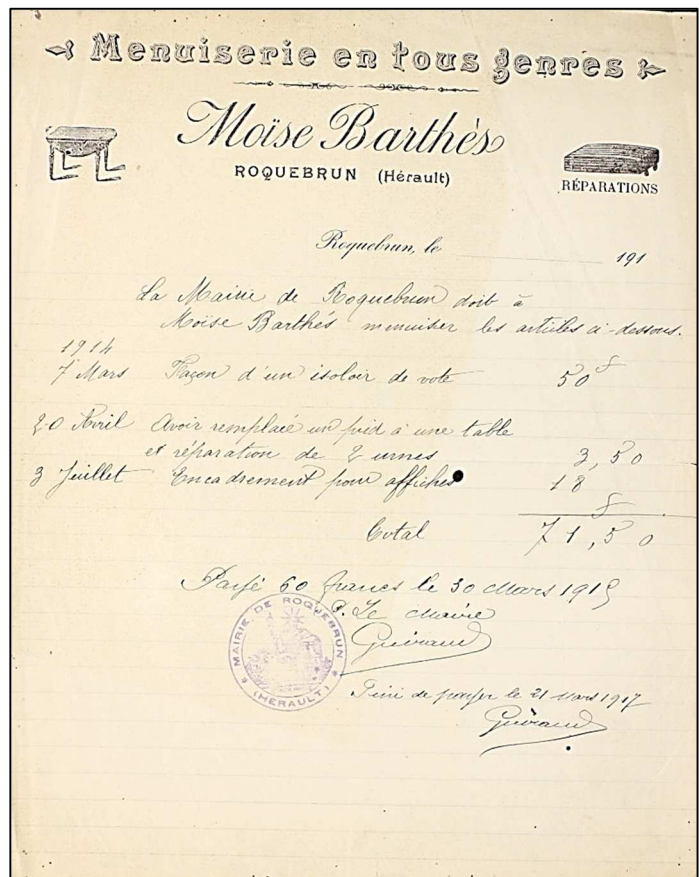 Menuiserie en tous genres
Moïse Barthés
ROQUEBRUN (Hérault)
RÉPARATIONS
Roquebrun, le 191
La Mairie de Roquebrun doit à
Moïse Barthés menuisier les articles ci-dessous.
1914
7 Mars Façon d'un isoloir de vote 50
20 Avril Avoir remplacé un pied à une table
et réparation de 2 urnes 3,50
3 Juillet Encadrement pour affiches 18
Total 71,50
Payé 60 francs le 30 Mars 1915
P. Le Maire
Guiraud
MAIRIE DE ROQUEBRUN
(HÉRAULT)
Fini de payer le 21 Mars 1917
Guiraud